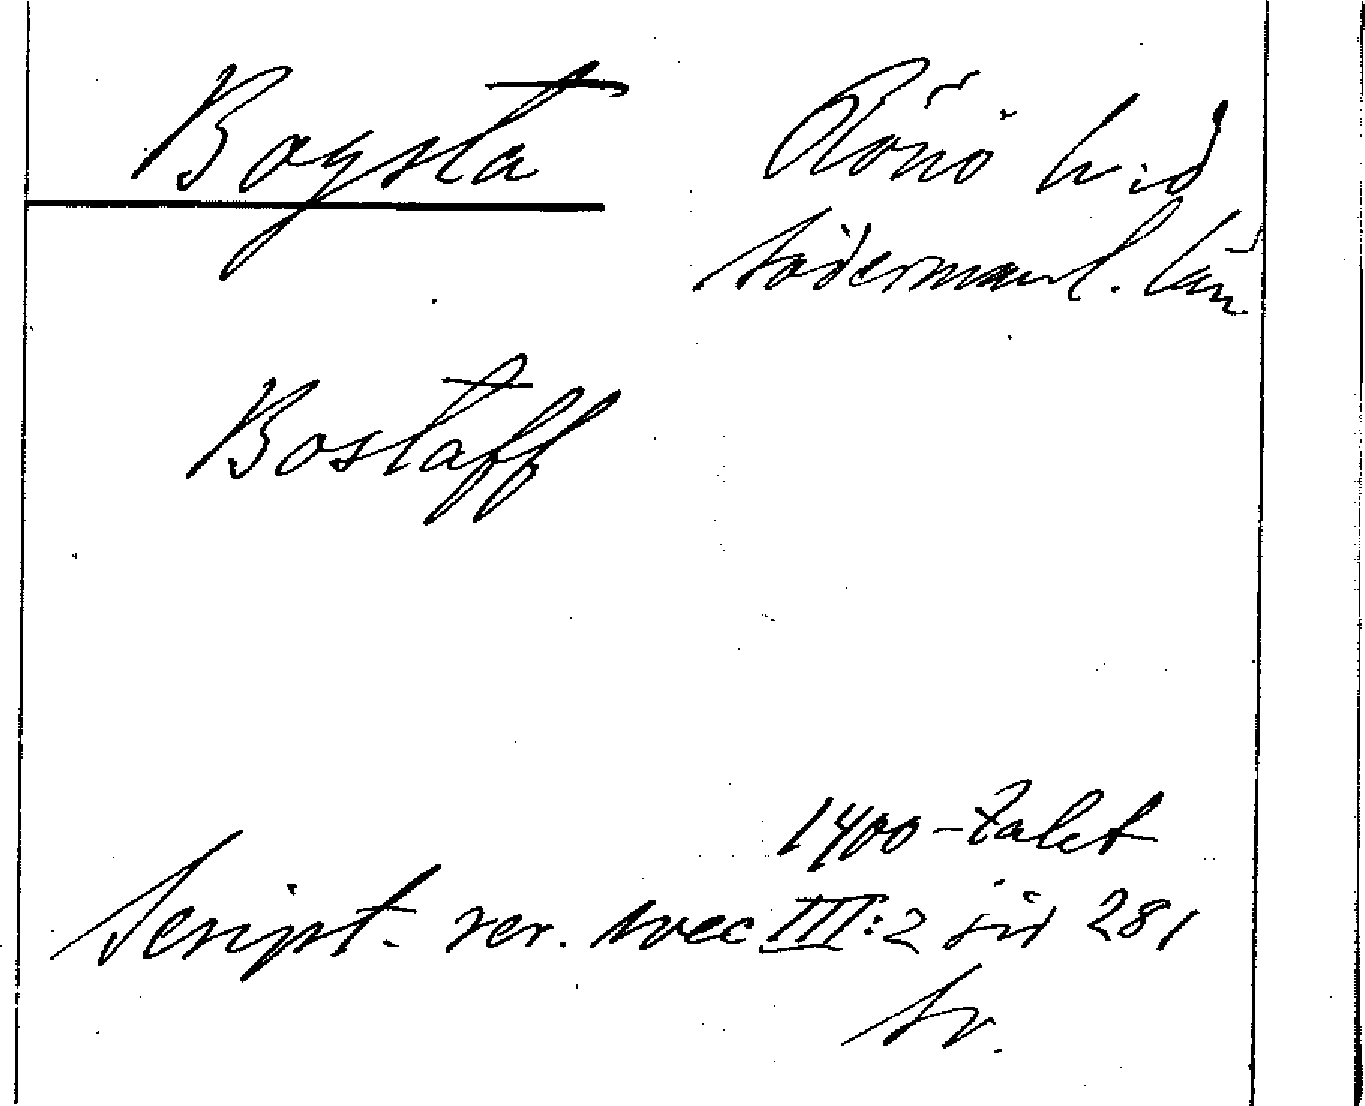 Bogsta Rönö h:d
Södermanl. län
Bostaff
1400-talet
Script. rer. svec III:2 sid 281
sv.